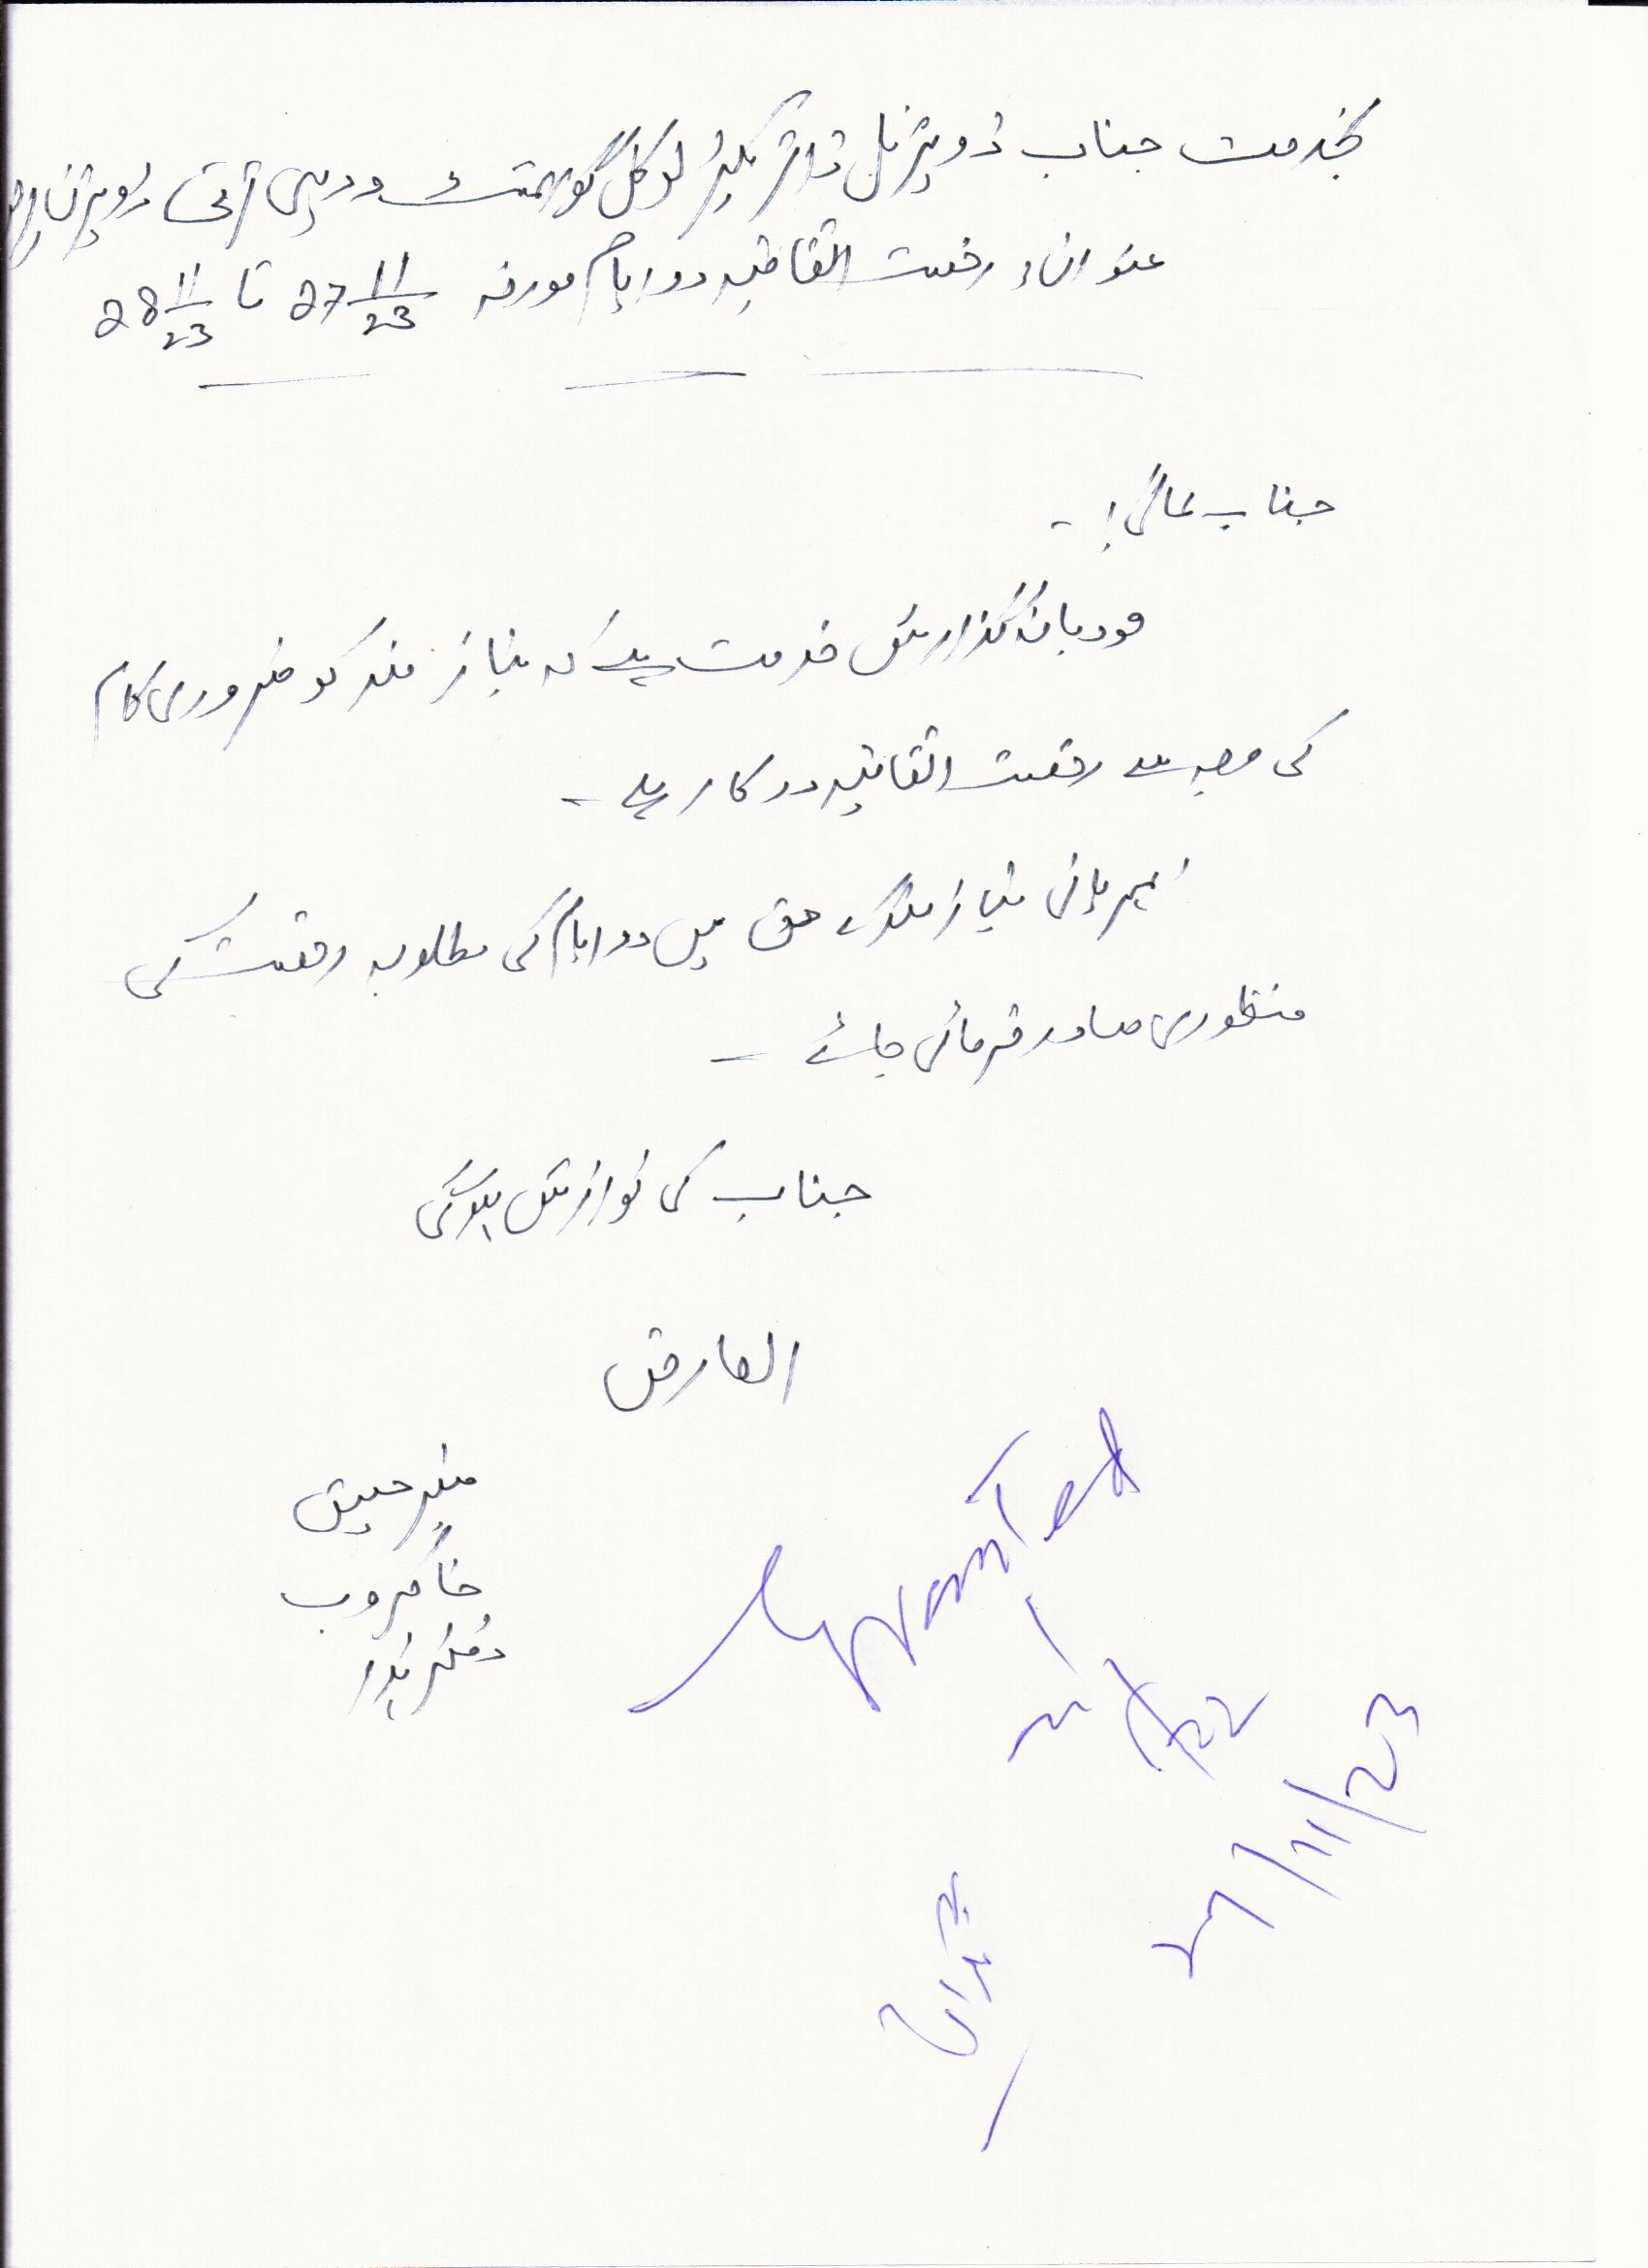 بخدمت جناب ڈویژنل ڈائریکٹر لوکل گورنمنٹ و دیہی ترقی ڈویژن
عنوان؛ رخصت اتفاقیہ دو ایام مورخہ 27 11/23 تا 28 11/23
جناب عالی! ۔
مودبانہ گذارش خدمت ہے کہ نیاز مند کو ضروری کام
کی وجہ سے رخصت اتفاقیہ درکار ہے ۔
نیاز مند کے حق میں دو ایام کی مطلوبہ رخصت کی
منظوری صادر فرمائی جائے ۔
جناب کی نوازش ہوگی
العارض
منیر
خاکروب
دفتر ہذا
Granted
27/11/23